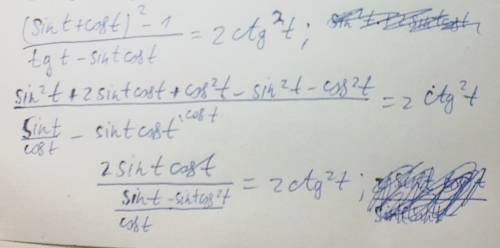 (sint+cost)² - 1 / tgt - sintcost = 2ctg²t;
sin²t + 2sintcost + cos²t - sin²t - cos²t / sint/cost - sintcost \cost = 2ctg²t
2sintcost / (sint - sintcos²t)/cost = 2ctg²t;